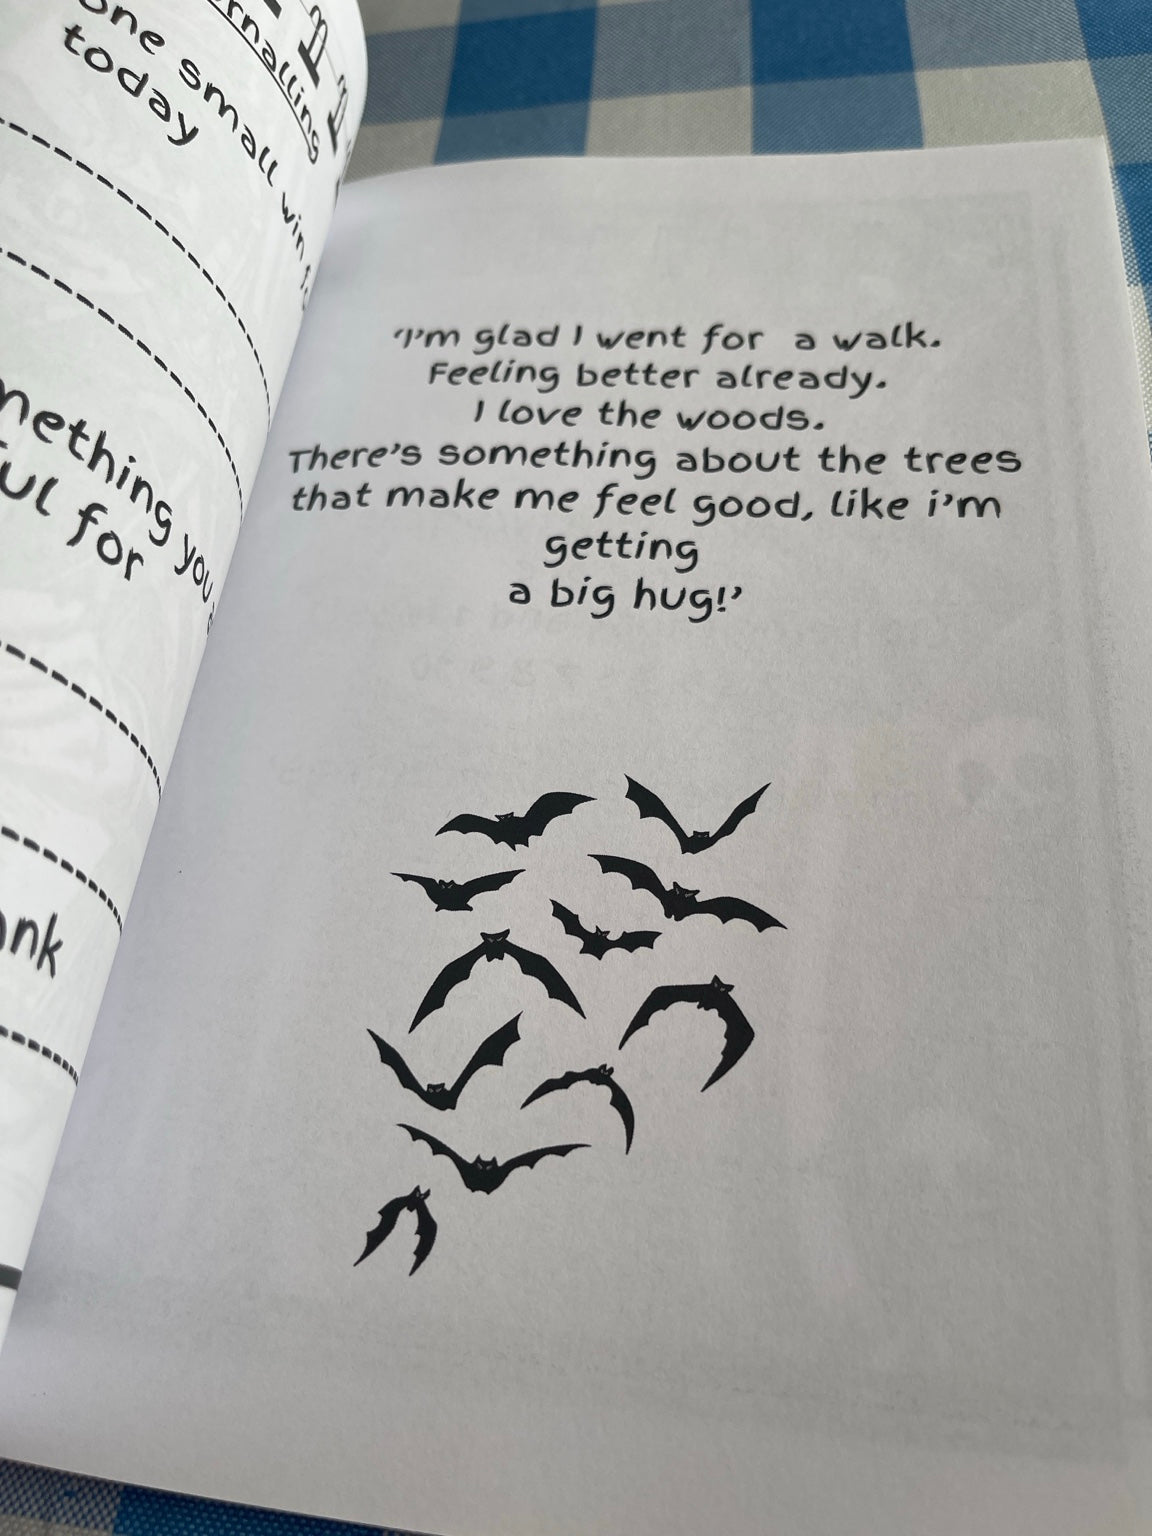 one small win
today
mething you
ul for
ank
'I'm glad I went for a walk.
Feeling better already.
I love the woods.
There's something about the trees
that make me feel good, like i'm
getting
a big hug!'